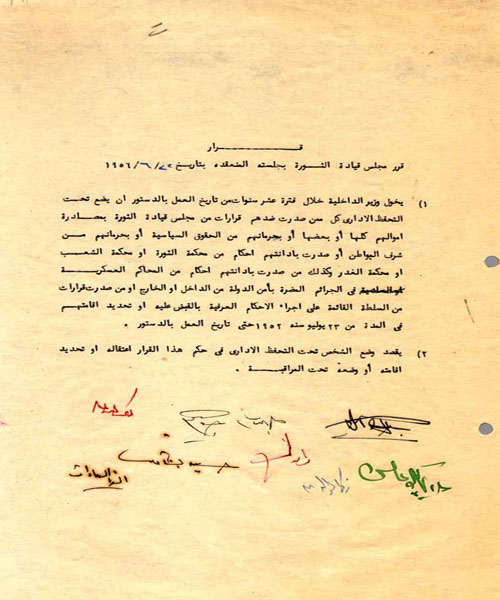 قـــرار
قرر مجلس قيادة الثورة بجلسته المنعقده بتاريخ ٢٢/٦/١٩٥٦
١) يخول وزير الداخلية خلال فترة عشر سنوات من تاريخ العمل بالدستور ان يضع تحت
التحفظ الادارى كل ممن صدرت ضدهم قرارات من مجلس قيادة الثورة بمصادرة
اموالهم كلها أو بعضها أو بحرمانهم من الحقوق السياسية أو بحرمانهم مـــن
شرف المواطن أو صدرت بادانتهم احكام من محكمة الثورة او محكمة الشعب
او محكمة الغدر وكذلك من صدرت بادانتهم احكام من المحاكم العسكريـــة
فى الجرائم المضرة بأمن الدولة من الداخل او الخارج او من صدرت قرارات
من السلطة القائمة على اجراء الاحكام العرفية بالقبض عليه او تحديد اقامتهم
فى المدة من ٢٣ يوليو سنه ١٩٥٢ حتى تاريخ العمل بالدستور ٠
٢) يقصد وضع الشخص تحت التحفظ الادارى فى حكم هذا القرار اعتقاله او تحديد
اقامته أو وضعه تحت المراقبـــة ٠